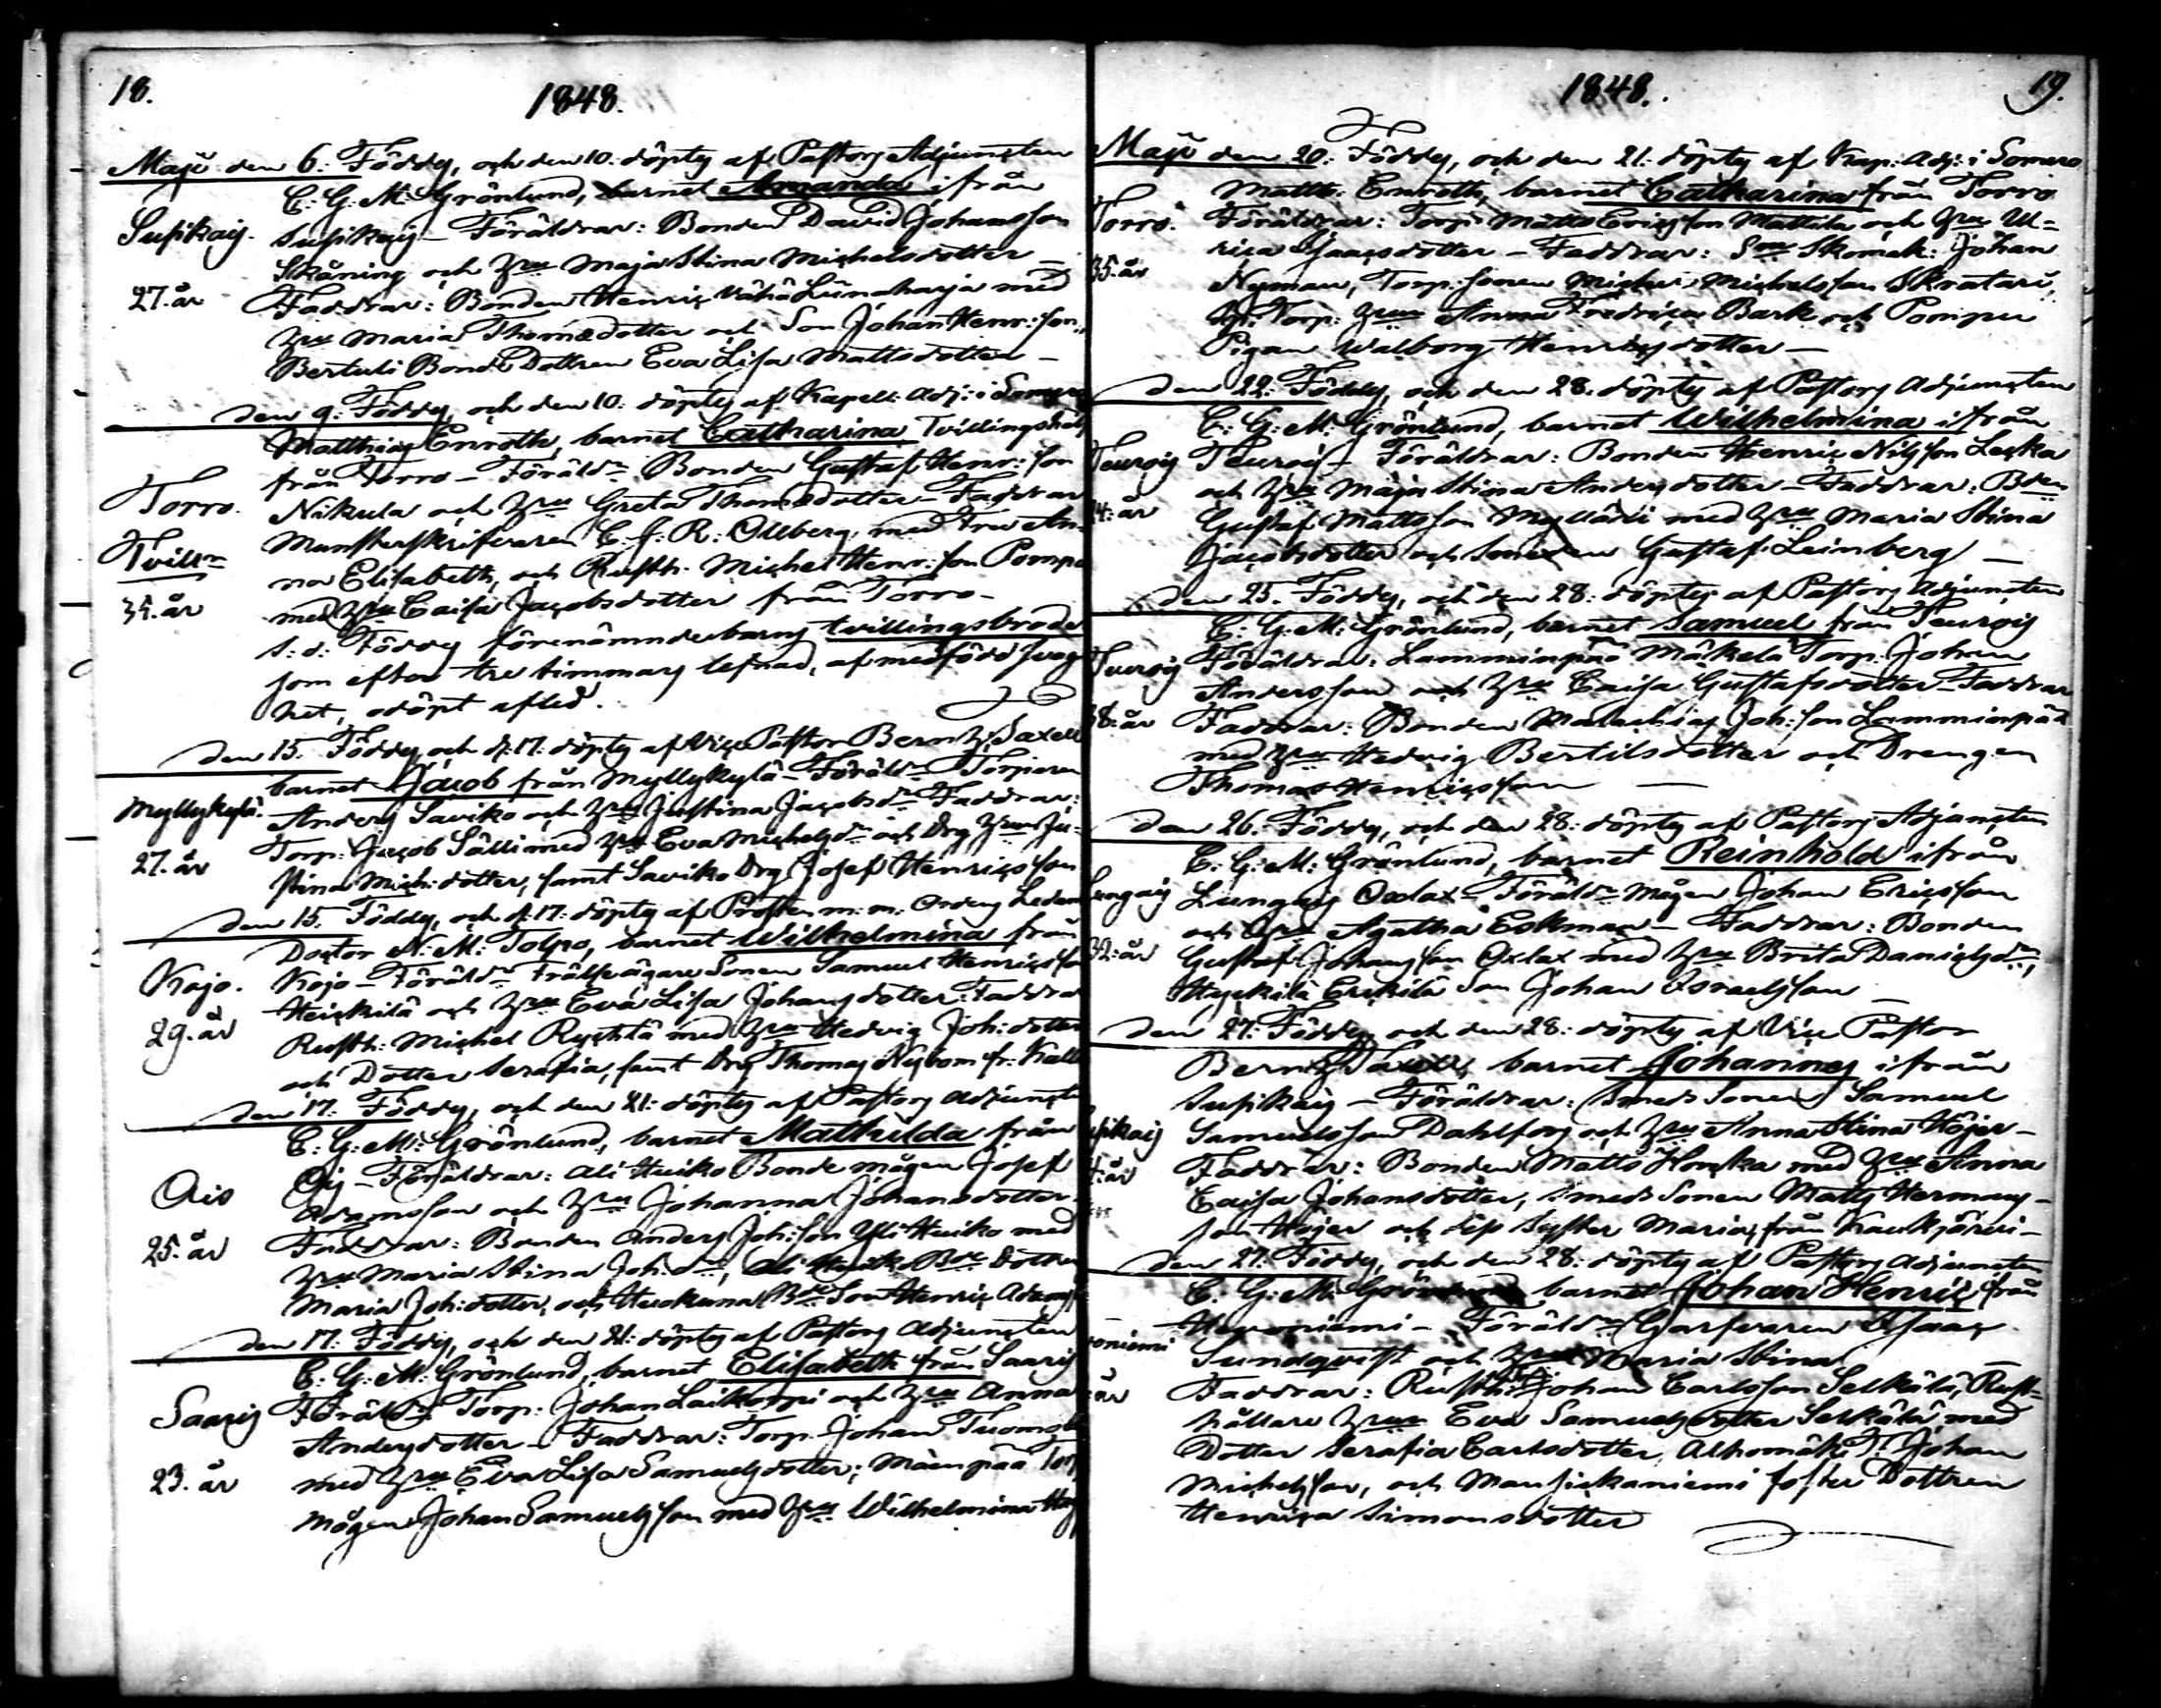 18.
1848.
Maji den 6: Föddes, och den 10. döptes af Pastors Adjuncten
C: G: M: Grönlund, barnet Amanda ifrån
Susikais. Susikais – Föräldrar: Bonden David Johansson
Skäning och Hru Maja Stina Michelsdotter –
27. år Faddrar: Bonden Henric Vähä Liinaharja med
Hru Maria Thomædotter och Son Johan Henr: son,
Bertuli Bonde Dottren Eva Lisa Mattsdotter –
den 9: Föddes, och den 10: döptes af Kapell: Adj: i
Matthias Enroth, barnet Catharina Tvillingsbarn
från Torro – Föräldr Bonden Gustaf Henr: son
Torro. Nikula och Hru Greta Thomædotter – Faddrar
Munsterskrifvaren C. J: R: Ollberg, med Fru An-
Tvilln na Elisabeth, och Rusth. Michel Henr: son Pompo
35. år med Hru Caisa Jacobsdotter från Torro –
S: d: Föddes förenämnde barns tvillingsbroder
som efter tre timmars lefnad, af medfödd svag
het, odöpt afled.
den 15. Föddes, och d: 17: döptes af Vice Pastor Bern: Saxell
barnet Jacob från Myllykylä – Föräldr Torparen
Myllykylä. Anders Saviko och Hru Justina Jacobsdr Faddrar:
Torp: Jacob Sälli med Hru Eva Michelsdr och Drg Hru Ju-
27. år stina Mich: dotter, samt Saviko Drg Josef Henricsson
den 15. Föddes, och d: 17: döptes af Prosten m: m: Ordens Ledam
Doctor N: M: Tolpo, barnet Wilhelmina från
Kojo. Kojo – Föräldr Frälseägare Sonen Samuel Henricsson
Heickilä och Hru Eva Lisa Johansdotter: Faddrar
29. år Rusth: Michel Rychtä med Hru Hedvig Joh: dotter
och Dotter Serafia, samt Drg Thomas Nybom fr: Kall
den 17. Föddes, och den 21: döptes af Pastors Adjuncten
C: G: M: Grönlund, barnet Mathilda från
Ois Ojs – Föräldrar: Ali Huiko Bonde mågen Josef
Adamsson och Hru Johanna Johansdotter
25. år Faddrar: Bonden Anders Joh: son Yli Huiko med
Hru Maria Stina Joh: dr, Ali Huiko Bde Dottren
Maria Joh: dotter, och Huokuna Bde Son Henric Adams
den 17: Föddes, och den 21: döptes af Pastors Adjuncten
C: G: M: Grönlund, barnet Elisabeth från Saaris
Saaris Föräldr Torp: Johan Laikorpi och Hru Anna
Andersdotter – Faddrar: Torp. Johan Tuom
23. år med Hru Eva Lisa Samuelsdotter; Mäenpää Torp
mågen Johan Samuelsson med Hru Wilhelmina
1848.
19.
Maji den 20: Föddes, och den 21: döptes af Kap: Adj: i Somero
Matth: Enroth, barnet Catharina från Torro
Torro. Föräldrar: Torp: Matts Ericsson Mattila och Hru Ul-
rica Isaacsdotter – Faddrar: Sne Skomak: Johan
35. år Nyman, Torp: sonen Michel Michelsson Skratari,
Torp: Hrun Anna Fredrica Bark och Pompen
Pigan Walborg Henricsdotter –
den 22: Föddes, och den 28. döptes af Pastors Adjuncten
C: G: M: Grönlund, barnet Wilhelmina ifrån
Teurois Teurois – Föräldrar: Bonden Henric Nilsson Lecka
och Hru Maja Stina Andersdotter – Faddrar: Bden
4: år Gustaf Mattsson Mylläri med Hru Maria Stina
Jacobsdotter och Smeden Gustaf Leinberg –
den 25. Föddes, och den 28: döptes af Pastors Adjuncten
C: G: M: Grönlund, barnet Samuel från Teurois
Teurois Föräldrar: Lamminpää Mäkelä Torp. Johan
Andersson och Hru Caisa Gustafsdotter – Faddrar
38: år Faddrar: Bonden Malachias Joh: son Lamminpää
med Hru Hedvig Bertilsdotter och Drengen
Thomas Henricsson –
den 26: Föddes, och den 28: döptes af Pastors Adjuncten
C: G: M: Grönlund, barnet Reinhold ifrån
Lungais Lungais Oxlax – Föräldr Mågen Johan Ericsson
och Hru Agatha Eskman – Faddrar: Bonden
32: år Gustaf Johansson Oxlax med Hru Brita Danielsdr,
Heickilä Erckilä Son Johan Israelsson –
den 27: Föddes, och den 28: döptes af Vice Pastor
Bern: Saxell, barnet Johannes ifrån
Susikais – Föräldrar: Smeds Sonen Samuel
sikais Samuelsson Dahlfors och Hru Anna Stina Höjer –
år Faddrar: Bonden Matts Honka med Hru Anna
Caisa Johansdotter, Smeds Sonen Matts Hermans-
son Höjer och dess Syster Maria, från Kaukjärvi –
den 27. Föddes, och den 28: döptes af Pastors Adjuncten
C: G: M: Grönlund barnet Johan Henric, från
oniemi niemi – Föräldr Garfvaren Isaac
Sundqvist och Hru Maria Stina –
år Faddrar: Rusth: Johan Carlsson Selkälä, Rust-
hållare Hrun Eva Samuelsdotter Selkälä med
Dotter Serafia Carlsdotter, Alhomäki T: Johan
Michelsson, och Mansickaniemi foster Dottren
Henrica Simonsdotter